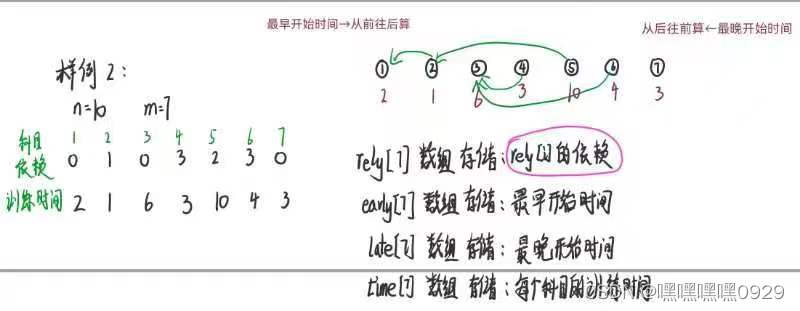 最早开始时间→从前往后算
从后往前算←最晚开始时间
样例2:
n=10 m=7
科目 1 2 3 4 5 6 7
依赖 0 1 0 3 2 3 0
训练时间 2 1 6 3 10 4 3
① ② ③ ④ ⑤ ⑥ ⑦
2 1 6 3 10 4 3
rely[7] 数组 存储: rely[i]的依赖
early[7] 数组 存储: 最早开始时间
late[7] 数组 存储: 最晚开始时间
time[7] 数组 存储: 每个科目的训练时间
CSDN @嘿嘿嘿嘿0929